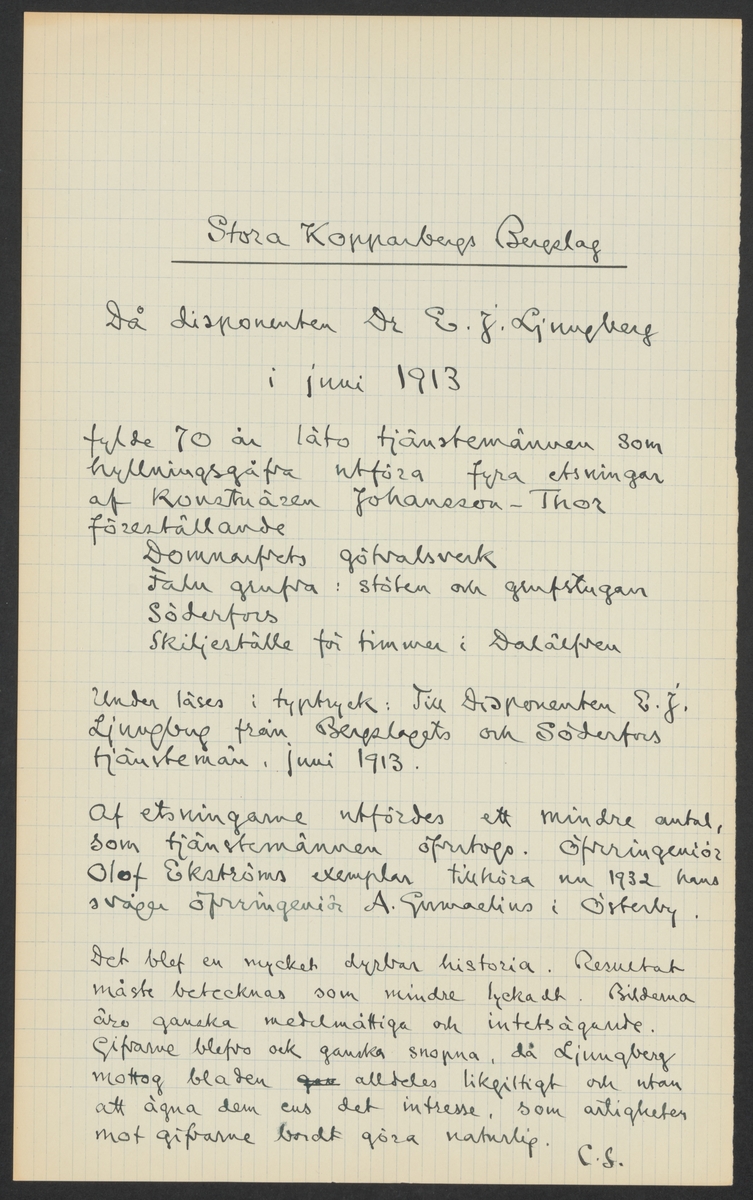 Stora Kopparbergs Bergslag
Då disponenten Dr E. J. Ljungberg
i juni 1913
fylde 70 år läto tjänstemännen som
hyllningsgåfva utföra fyra etsningar
af Konstnären Johansson-Thor
föreställande
Domnarfvets götvalsverk
Falu grufva: stöten och grufstugan
Söderfors
Skiljeställe för timmer i Dalälfven
Under läses i typtryck: Till Disponenten E. J.
Ljungberg från Bergslagets och Söderfors
tjänstemän, juni 1913.
Af etsningarne utfördes ett mindre antal,
som tjänstemännen öfvertogo. Öfveringeniör
Olof Ekströms exemplar tillhöra nu 1932 hans
svåger öfveringeniör A. Gumaelius i Österby.
Det blef en mycket dyrbar historia. Resultat
måste betecknas som mindre lyckadt. Bilderna
äro ganska medelmåttiga och intetsägande.
Gifvarne blefvo ock ganska snopna, då Ljungberg
mottog bladen alldeles likgiltigt och utan
att ägna dem ens det intresse, som artigheten
mot gifvarne bordt göra naturlig.
C.S.